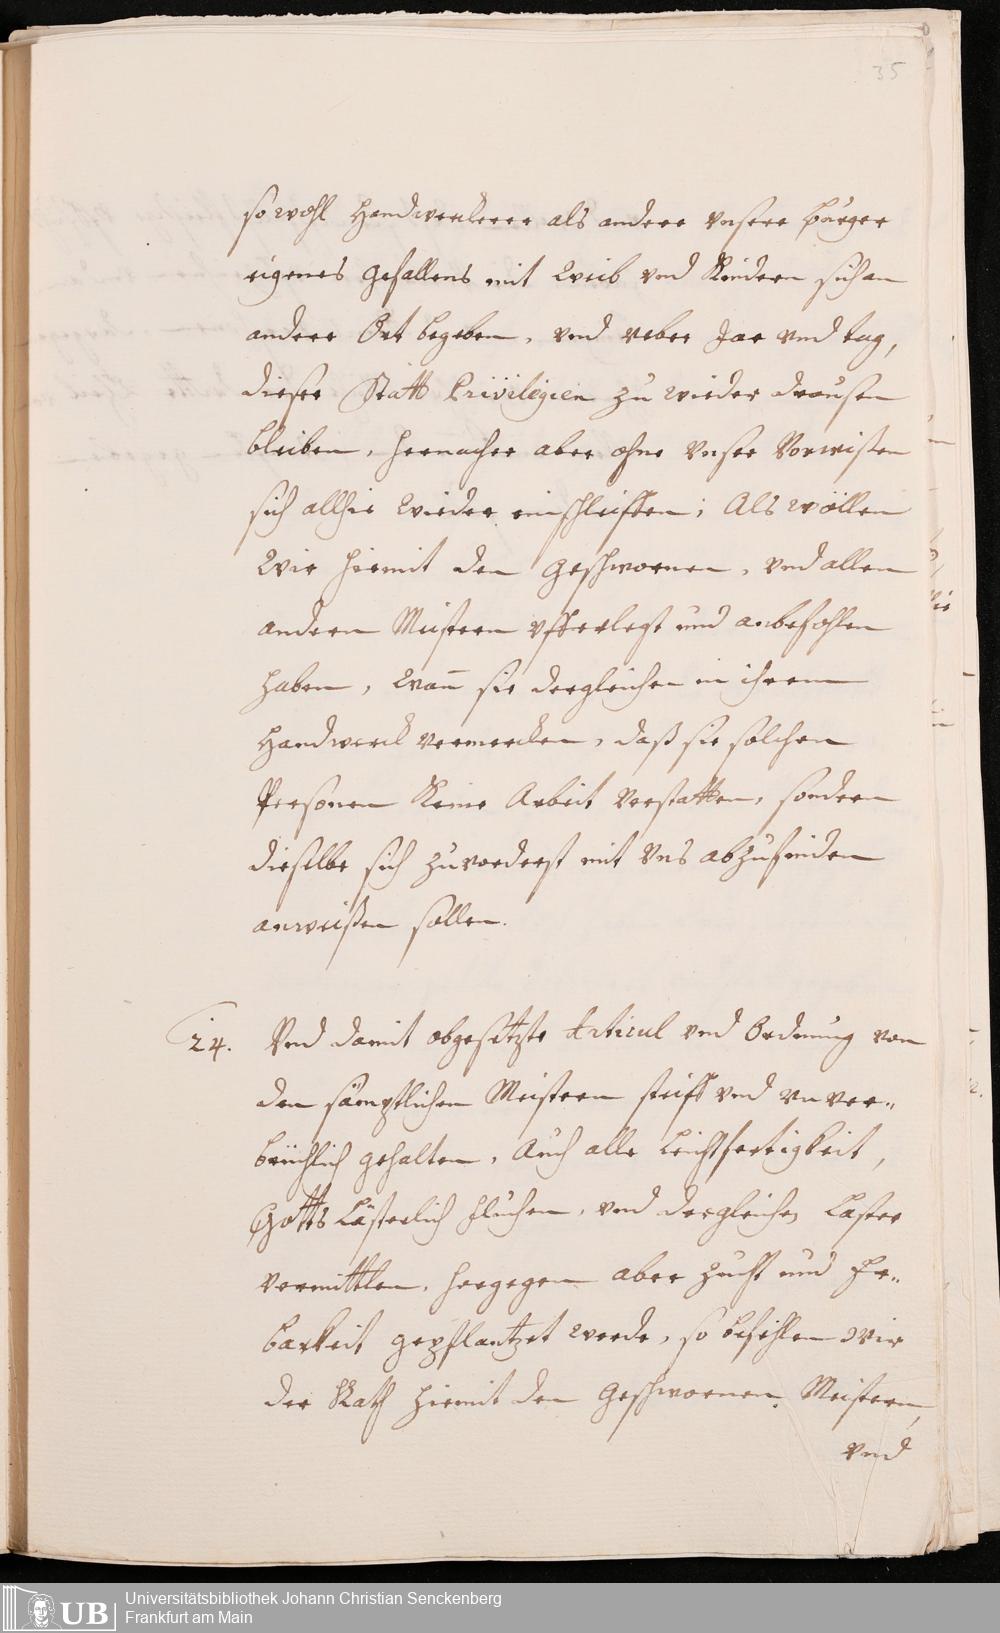 35
so wohl Handwerckerer als andere vnsere burger
eigenes gefallens mit Weib vnd Kindern sich an
andere Ort begeben, vnd veber Jar vnd tag,
dieser Statt Privilegien zu wieder draussen
bleiben, hernacher aber ohne vnser Vorwissen
sich allhie wieder einschleiffen; Als wöllen
Wir hiemit den geschwornen, vnd allen
andern Meistern vfferlegt und anbefohlen
haben, Wan̄ sie dergleichen in ihrem
Handwerck vermercken, daß sie solchen
Personen keine Arbeit verstatten, sondern
dieselbe sich zuvorderst mit Vns abzufinden
anweißen sollen.
24. Vnd damit obgesetzte Articul vnd Ordnung von
den sämptlichen Meistern steiff vnd vnver„
brüchlich gehalten, Auch alle leichtfertigkeit,
Gotts Lästerlich fluchen, vnd dergleichen Laster
vermittlen, hergegen aber zucht und Er„
barkeit gepflantzet werde, so befehlen Wir
der Rath hiemit den geschwornen Meistern,
vnd
UB
Universitätsbibliothek Johann Christian Senckenberg
Frankfurt am Main